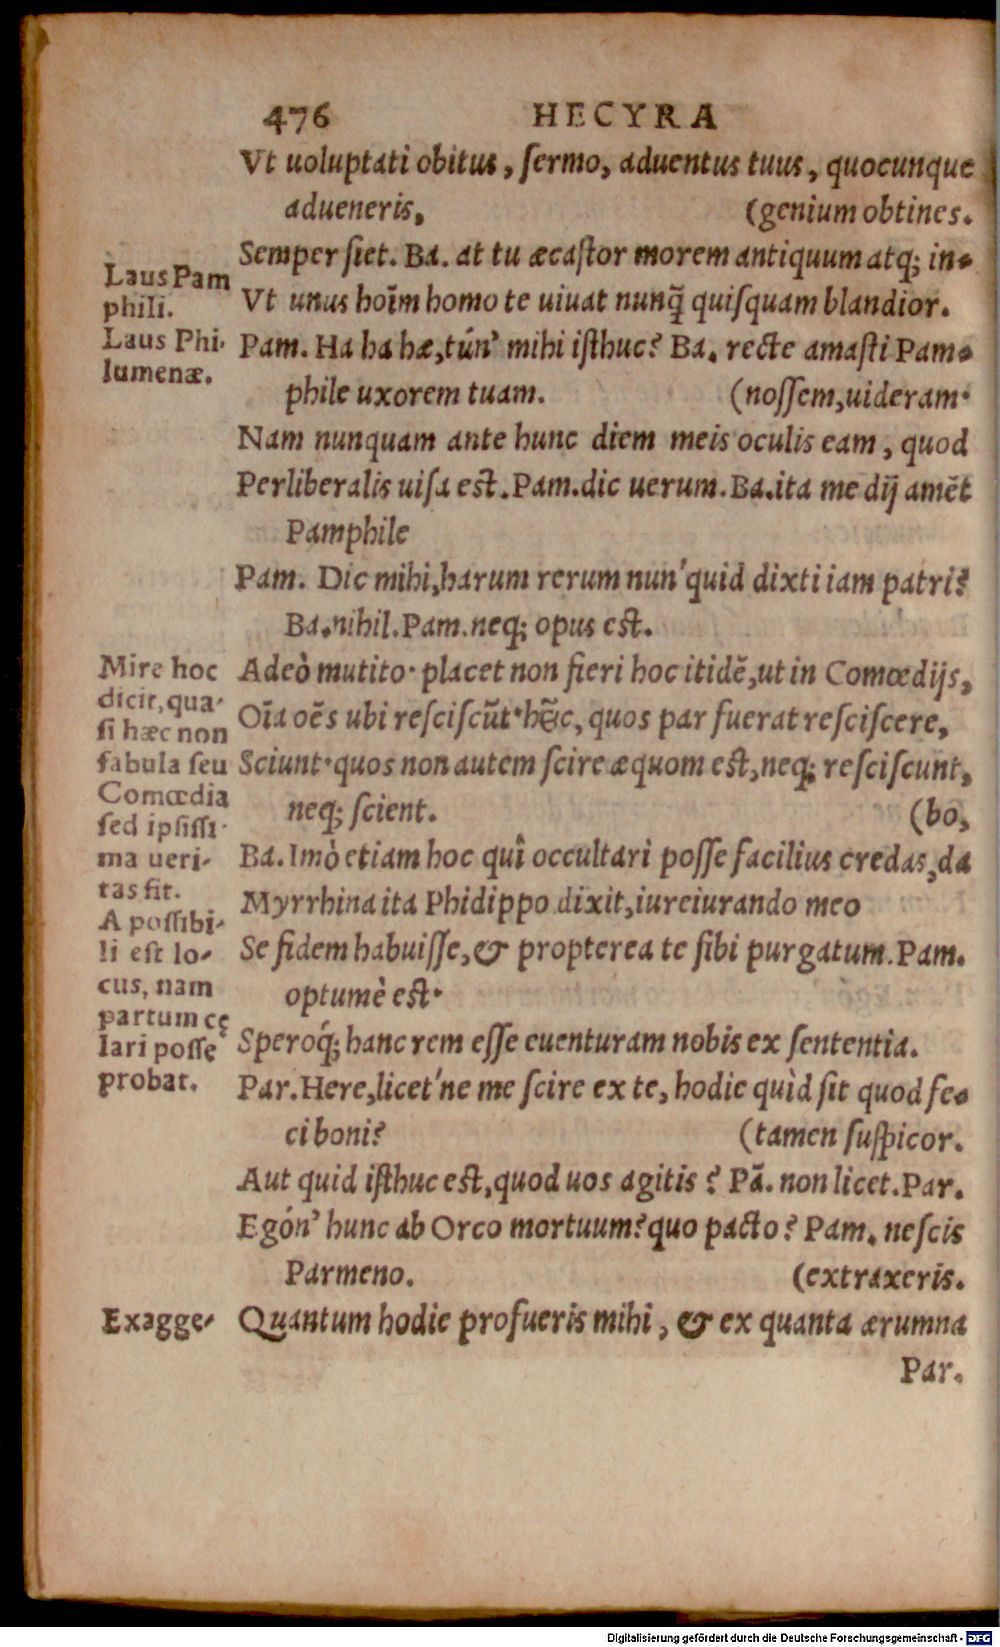 476 HECYRA
Vt uoluptati obitus, sermo, aduentus tuus, quocunque
adueneris, (genium obtines.
Semper siet. Ba. at tu æcastor morem antiquum atq; in-
Vt unus hoīm homo te uiuat nunq̃ quisquam blandior.
Laus Pam
phili.
Laus Phi-
lumenæ.
Pam. Ha ha hæ, tún' mihi isthuc? Ba. recte amasti Pam-
phile uxorem tuam. (nossem, uideram·
Nam nunquam ante hunc diem meis oculis eam, quod
Perliberalis uisa est. Pam. dic uerum. Ba. ita me dij amēt
Pamphile
Pam. Dic mihi, harum rerum nun' quid dixti iam patri?
Ba. nihil. Pam. neq; opus est.
Adeò mutito· placet non fieri hoc itidē, ut in Comœdijs,
Oīa oēs ubi resciscūt· hc̄, quos par fuerat resciscere,
Sciunt· quos non autem scire æquom est, neq; resciscunt,
neq; scient. (bo,
Mire hoc
dicit, qua-
si hæc non
fabula seu
Comœdia
sed ipsissi-
ma ueri-
tas sit.
A possibi-
li est lo-
cus, nam
partum cę
lari posse
probat.
Ba. Imò etiam hoc quî occultari posse facilius credas, da
Myrrhina ita Phidippo dixit, iureiurando meo
Se fidem habuisse, & propterea te sibi purgatum. Pam.
optumè est·
Speroq́; hanc rem esse euenturam nobis ex sententia.
Par. Here, licet'ne me scire ex te, hodie quìd sit quod fe-
ci boni? (tamen suspicor.
Aut quid isthuc est, quod uos agitis? Pā. non licet. Par.
Egón' hunc ab Orco mortuum? quo pacto? Pam. nescis
Parmeno. (extraxeris.
Exagge-
Quantum hodie profueris mihi, & ex quanta ærumna
Par.
Digitalisierung gefördert durch die Deutsche Forschungsgemeinschaft - DFG